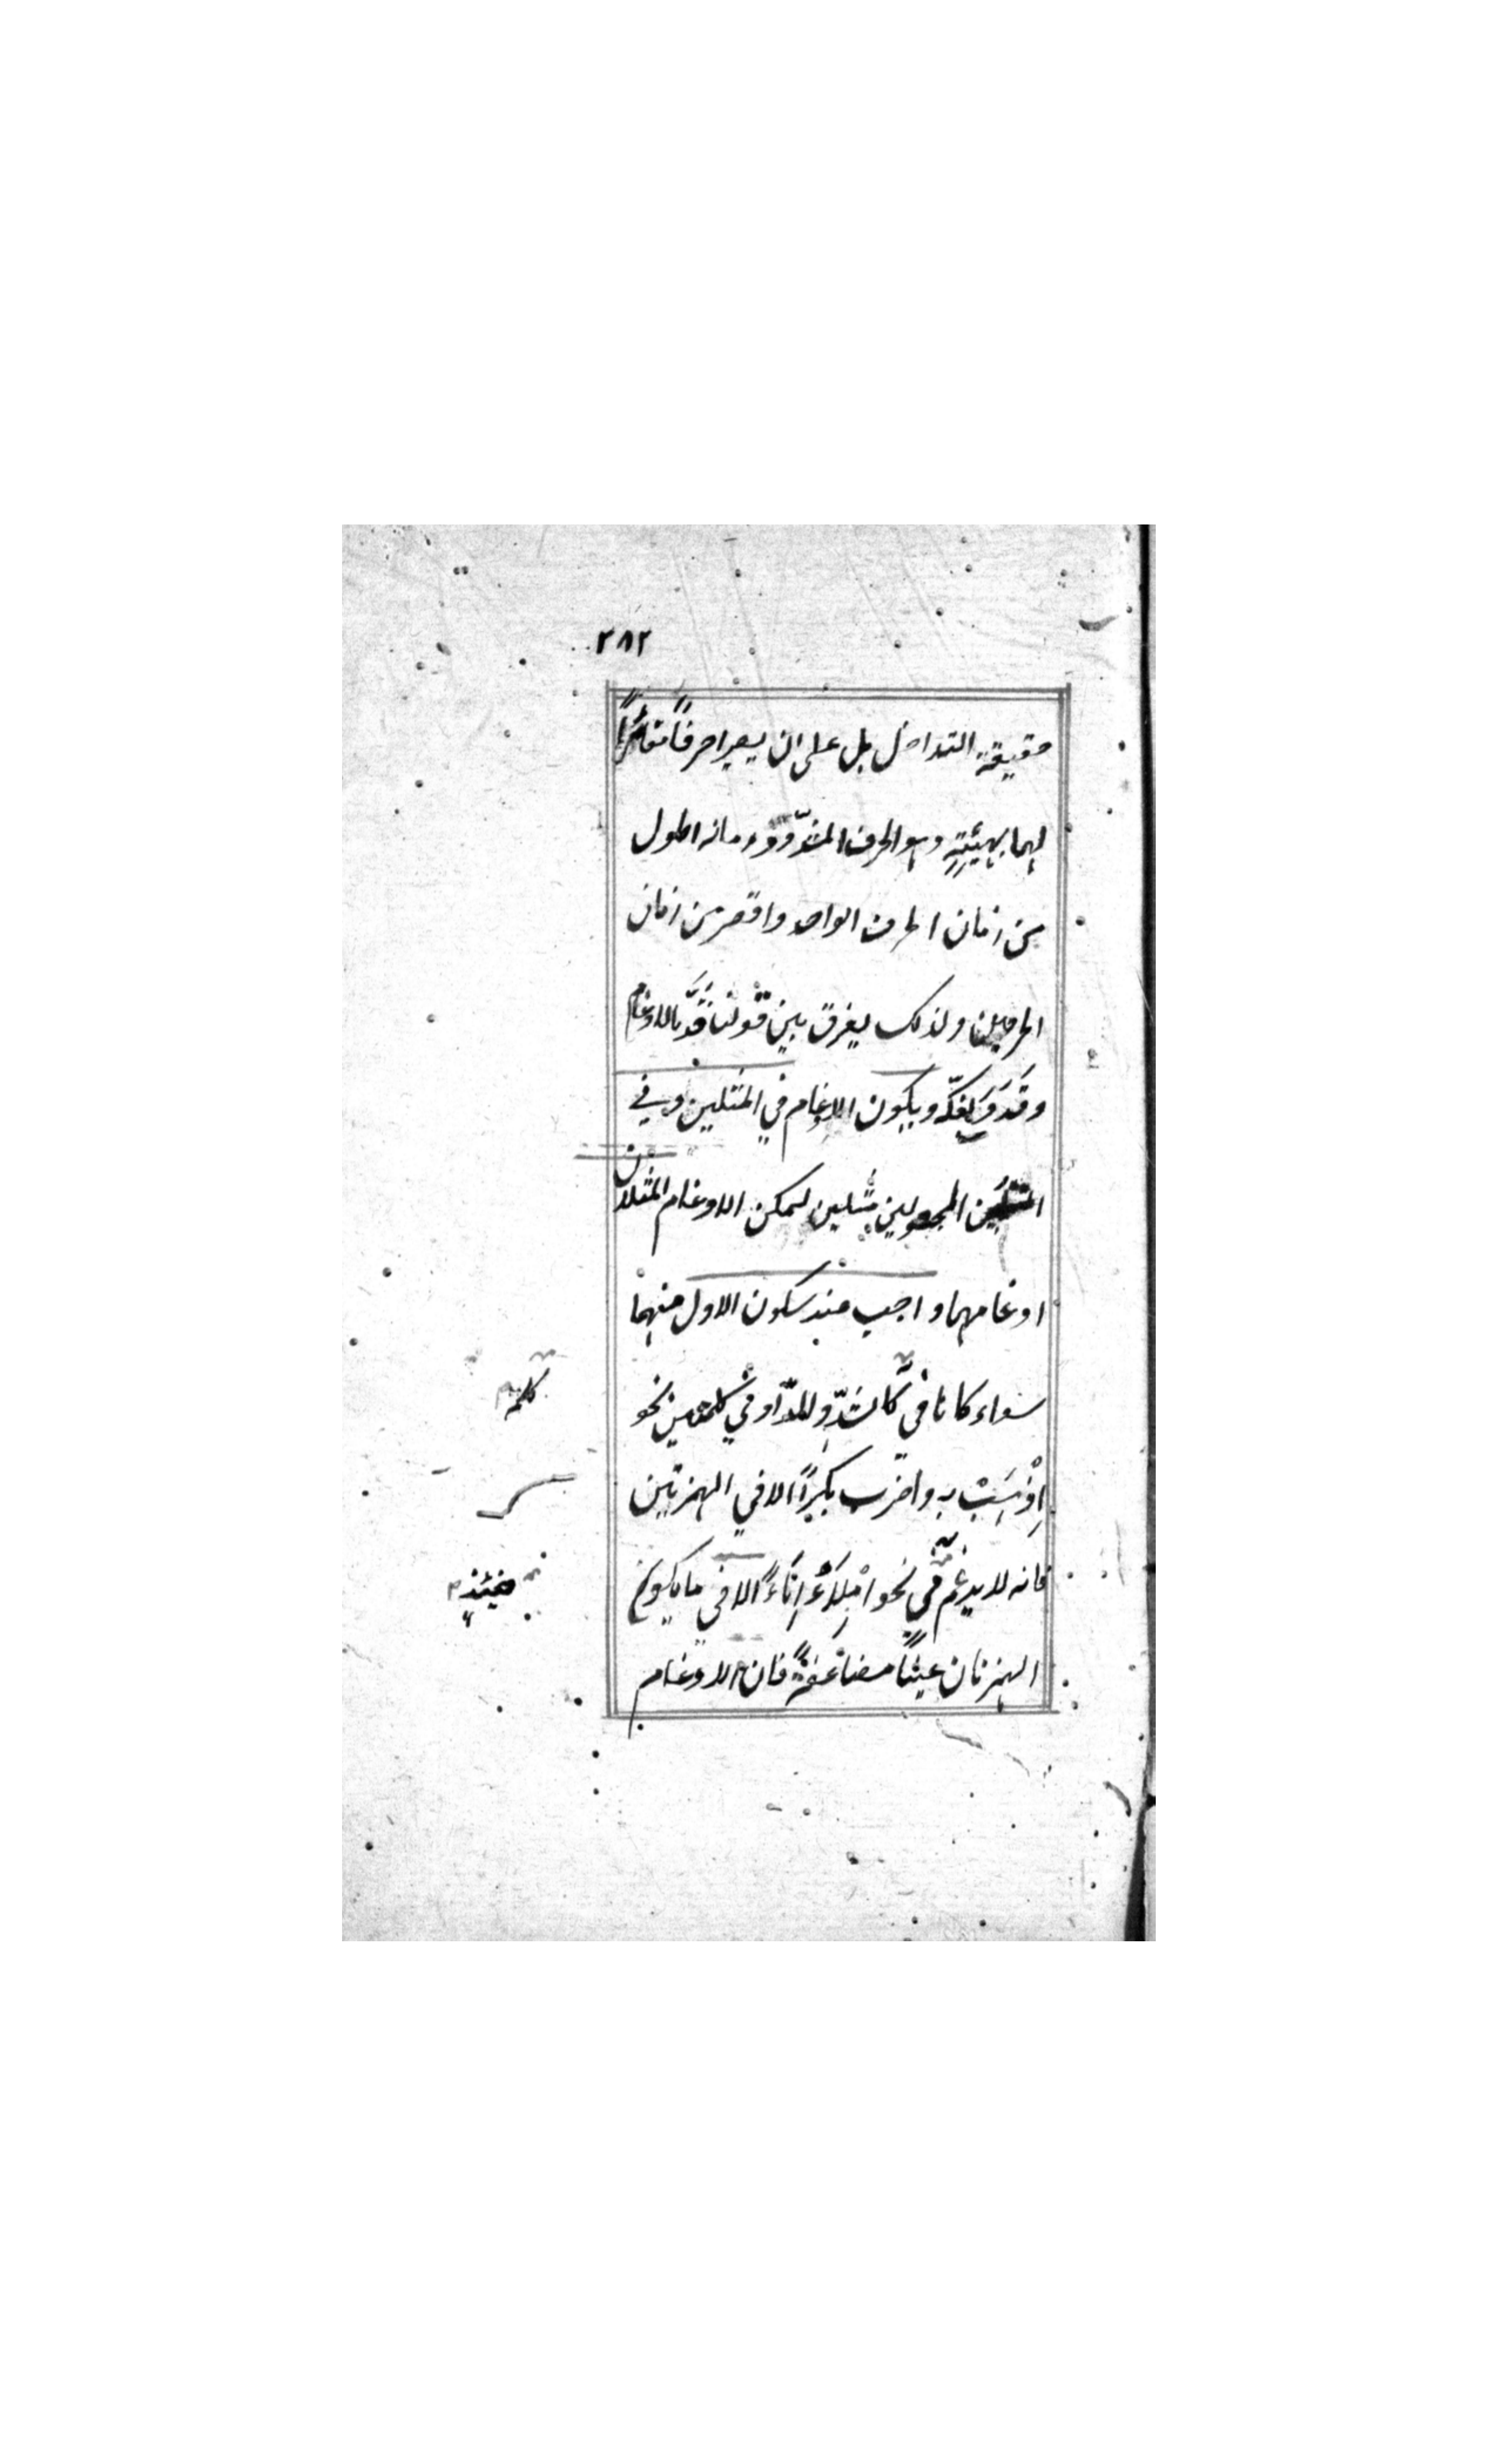 ٢٨٢
حقيقة التداخل بل على ان يصيرا حرفًا مغائرًا
لهما بهيئتِهِ وهو الحرف المشدّد وزمانه اطول
من زمان الحرف الواحد واقصر من زمان
الحرفين ولذلك يفرق بين قولنا قَدَّ بالادغام
وقَدَدَ بفكّه ويكون الادغام في المثلين وفي
المجعولين مثلين ليمكن الادغام المثلان
ادغامهما واجب عند سكون الاول منهما
سواء كانا في كالشَدِّ والمدّ او في كلمتين نحو
كلمة
به واضرب بكرًا الا في الهمزتين
فانه لا يدغم في نحو امْلَأْ إِنَاءً الا في ما يكون
حينئذٍ
الهمزتان عينًا مضاعفةً فان الادغام